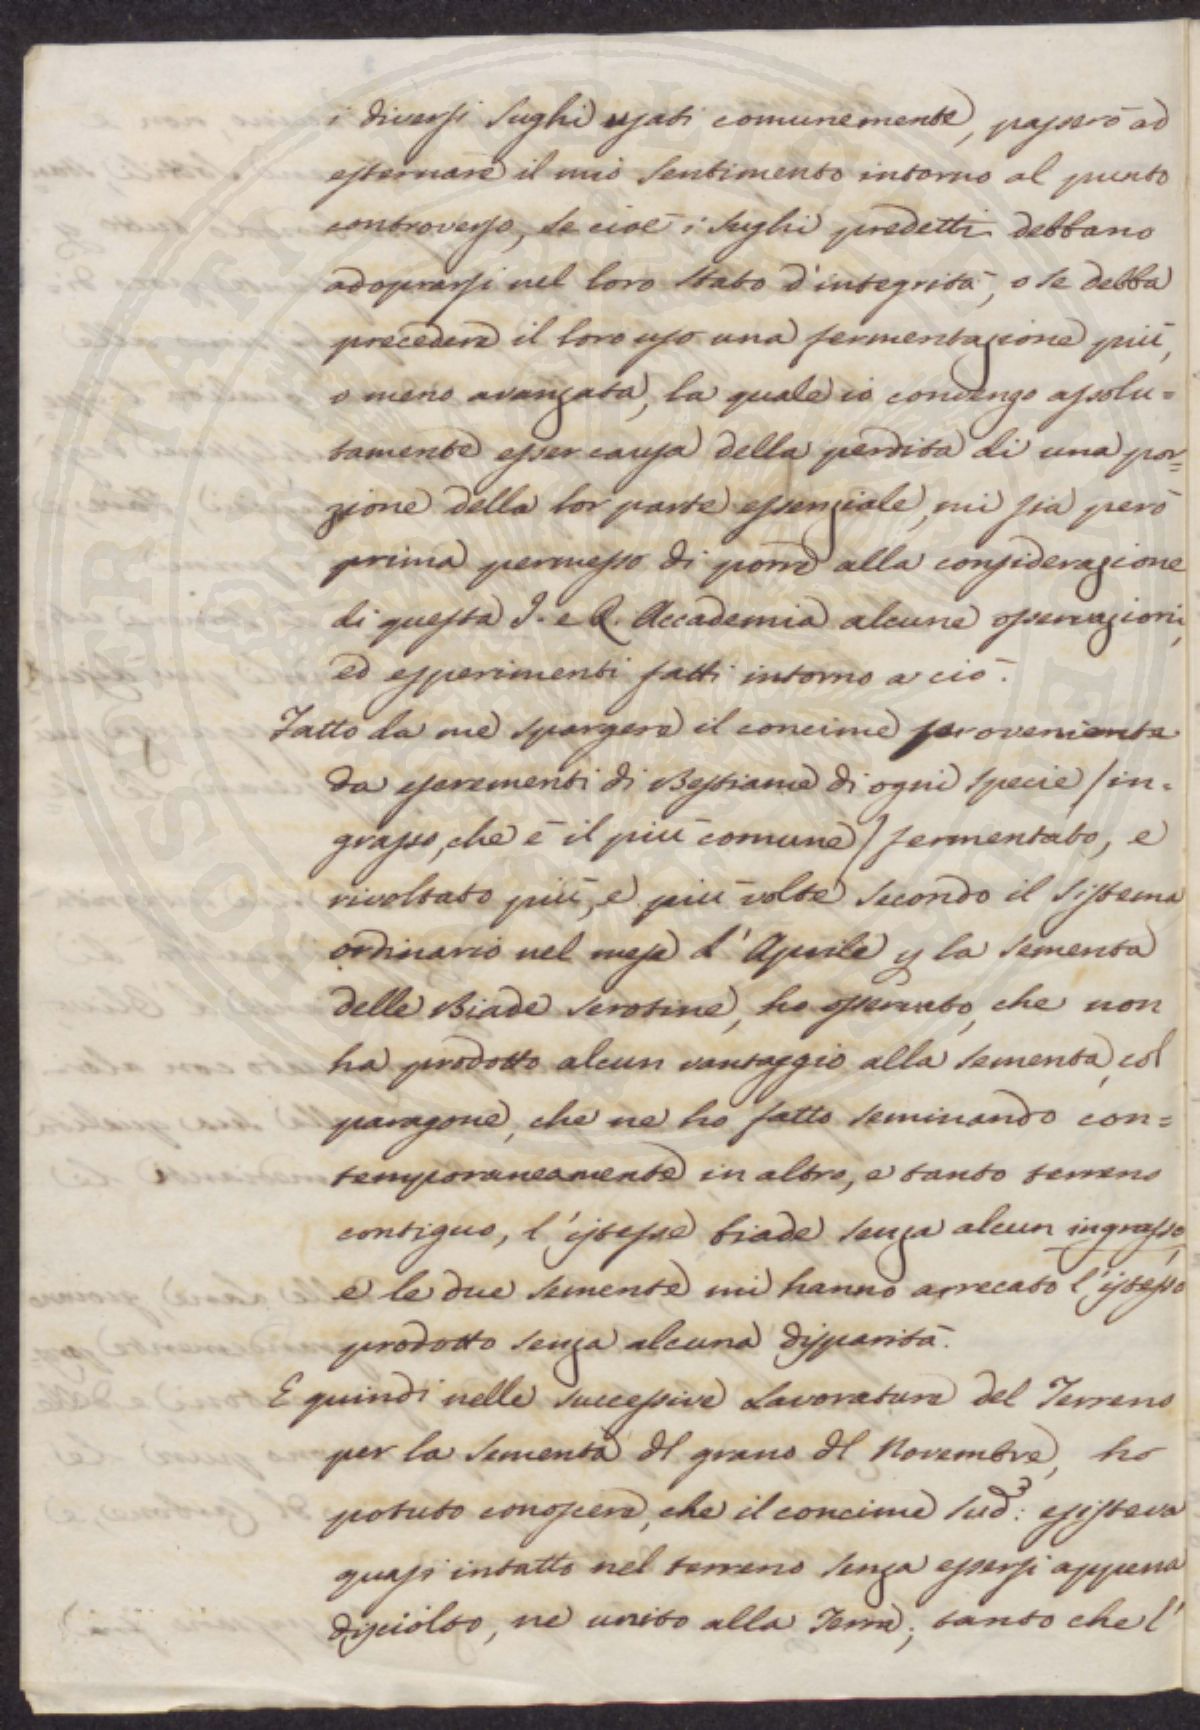 i diversi sughi usati comunemente, passerò ad
esternare il mio sentimento intorno al punto
controverso, se cioè i sughi predetti debbano
adoprarsi nel loro stato d'integrità, o se debba
precedere il loro uso una fermentazione più,
o meno avanzata, la quale io convengo assolu=
tamente esser causa della perdita di una por=
zione della lor parte essenziale, mi sia però
prima permesso di porre alla considerazione
di questa I. e R. Accademia alcune osservazioni,
ed esperimenti fatti intorno a ciò.
Fatto da me spargere il concime proveniente
da escrementi di Bestiame di ogni specie /in-
grasso, che è il più comune/ fermentato, e
rivoltato più, e più volte secondo il sistema
ordinario nel mese d'Aprile p la sementa
delle Biade serotine, ho osservato, che non
ha prodotto alcun vantaggio alla sementa, col
paragone, che ne ho fatto seminando con=
temporaneamente in altro, e tanto terreno
contiguo, l'istesse biade senza alcun ingrasso,
e le due semente mi hanno arrecato l'istesso
prodotto senza alcuna disparità.
E quindi nelle successive Lavorature del Terreno
per la sementa dl grano dl Novembre, ho
potuto conoscere, che il concime sud: esisteva
quasi intatto nel terreno senza essersi appena
disciolto, ne unito alla Terra; tanto che l'